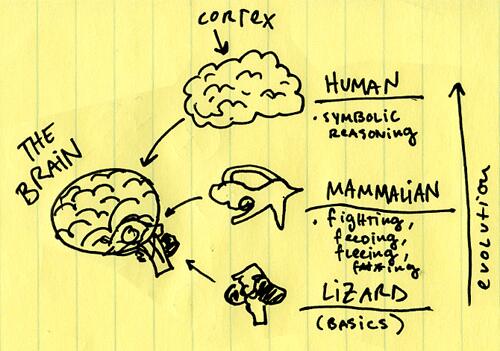 cortex
THE
BRAIN
HUMAN
• SYMBOLIC
REASONING
MAMMALIAN
• fighting,
feeding,
fleeing,
LIZARD
(BASICS)
evolution